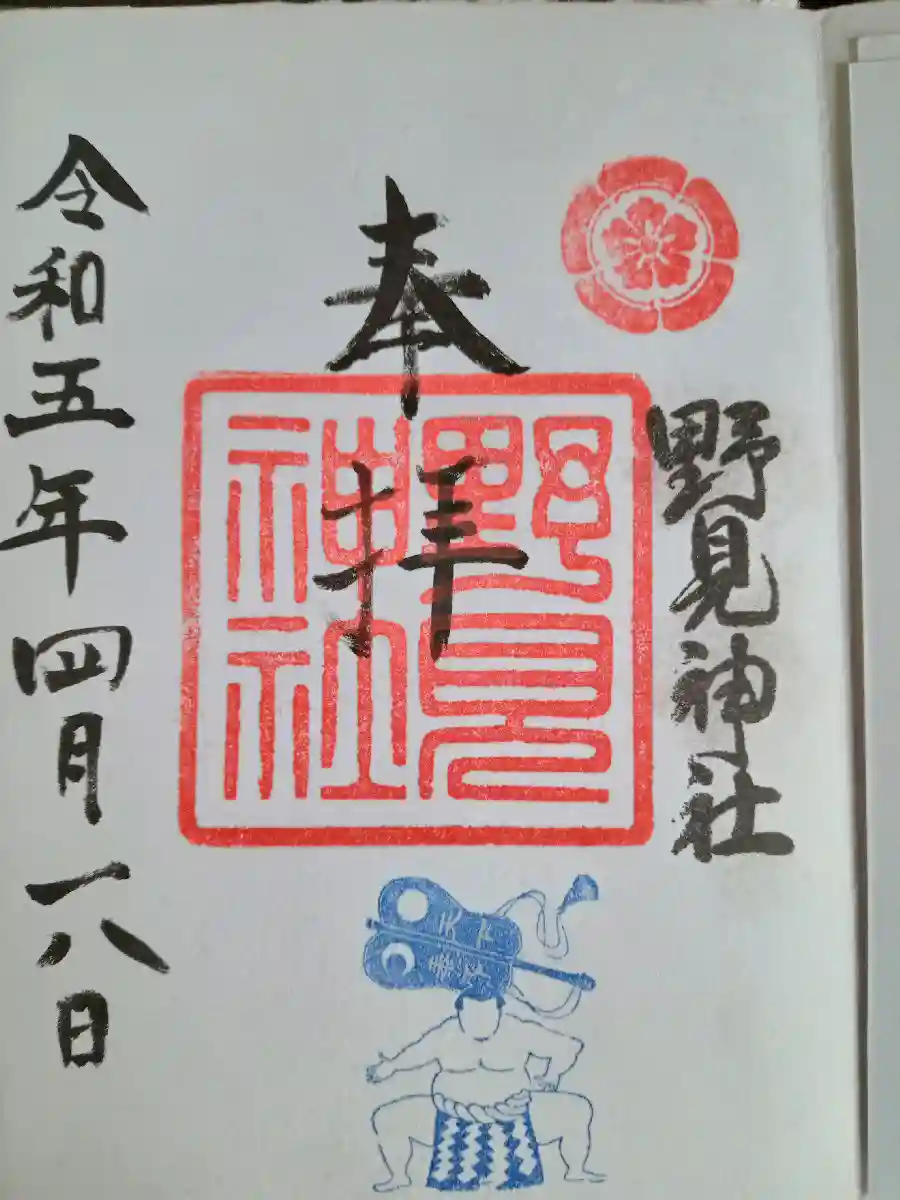 野見神社
奉拝
野見
神社
天下
泰平
令和五年四月一八日